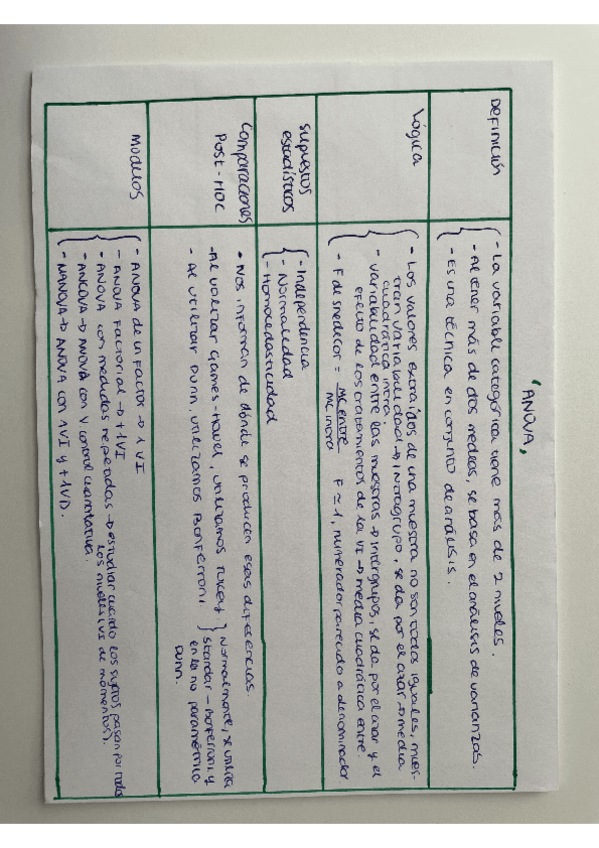 'ANOVA,
Definición
- La variable categórica tiene más de 2 niveles.
- Al tener más de dos medias, se basa en el análisis de varianzas.
- Es una técnica en conjunto de análisis.
Lógica
- Los valores extraídos de una muestra no son todos iguales, mues-
tran variabilidad → intragrupo, se da por el azar → media
cuadrática intra.
- variabilidad entre las muestras → intergrupos, se da por el azar y el
efecto de los tratamientos de la VI → media cuadrática entre.
- F de snedecor = MC entre / MC intra F ≃ 1, numerador parecido a denominador
Supuestos
estadísticos
- Independencia
- Normalidad
- Homocedasticidad
Comparaciones
Post-HOC
• Nos informan de dónde se producen esas diferencias.
- Al utilizar Games-Howel, utilizamos Tukey
- Al utilizar Dunn, utilizamos Bonferroni
Normalmente, se utiliza
Standar - Bonferroni y
en la no paramétrica
Dunn.
Modelos
- ANOVA de un factor → 1 VI
- ANOVA Factorial → +1VI
- ANOVA con medidas repetidas → estudiar cuando los sujetos pasan por todos
los niveles (VI de momentos).
- ANCOVA → ANOVA con V control cuantitativa
- MANOVA → ANOVA con 1VI y +1VD.